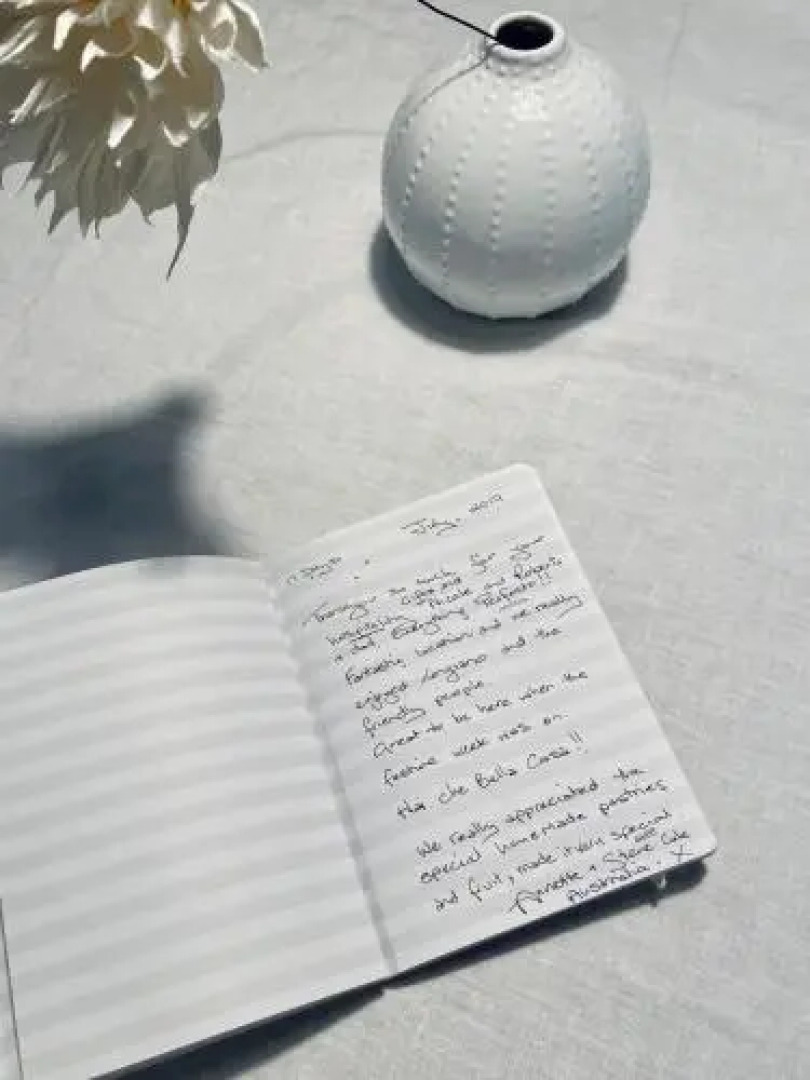 July. 2019
so much for your
hospitality Nicole and Roberto
and everything Perfecto!!
Fantastic location and we really
enjoyed and the
friendly people.
Great to be here when the
festive week was on.
Ma che Bella Casa!!
We really appreciated the
special homemade pastries
and fruit, made it very special
Annette + Steve
Australia. X